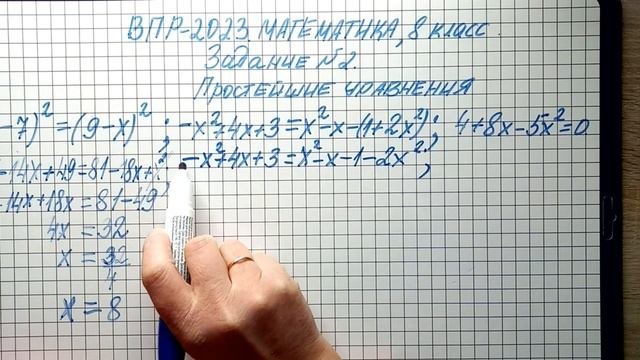 ВПР-2023. МАТЕМАТИКА, 8 класс.
Задание №2.
Простейшие уравнения
-7)²=(9-x)²; -x²+4x+3=x²-x-(1+2x²); 4+8x-5x²=0
-14x+49=81-18x+x², -x²+4x+3=x²-x-1-2x²,
-14x+18x=81-49
4x=32
x=32/4
x=8